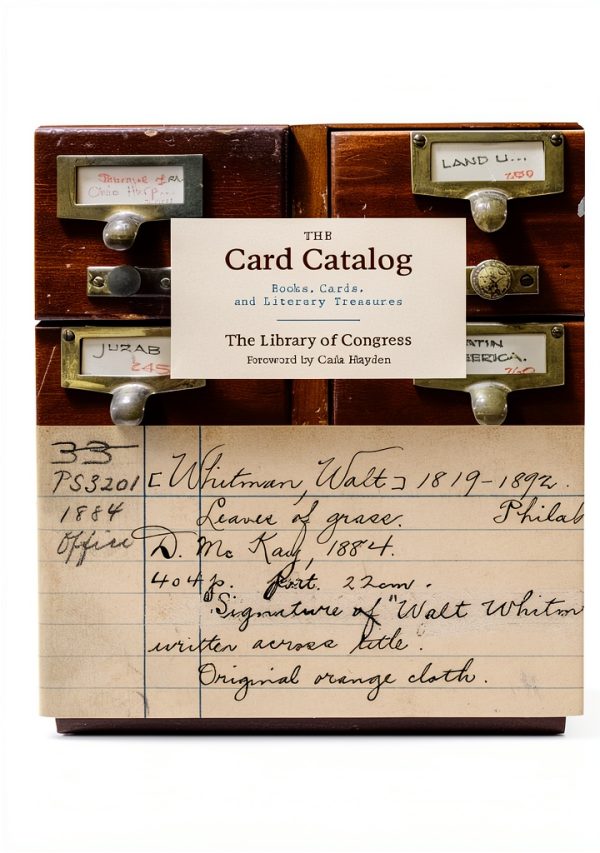 LAND U...
THE
Card Catalog
Books, Cards,
and Literary Treasures
The Library of Congress
Foreword by Carla Hayden
JUZAB
245
ATIN
ERICA.
33
PS3201 [Whitman, Walt] 1819-1892.
1884 Leaves of grass. Philab
Office D. Mc Kay, 1884.
404p. port. 22cm.
"Signature of "Walt Whitm
written across title.
Original orange cloth.